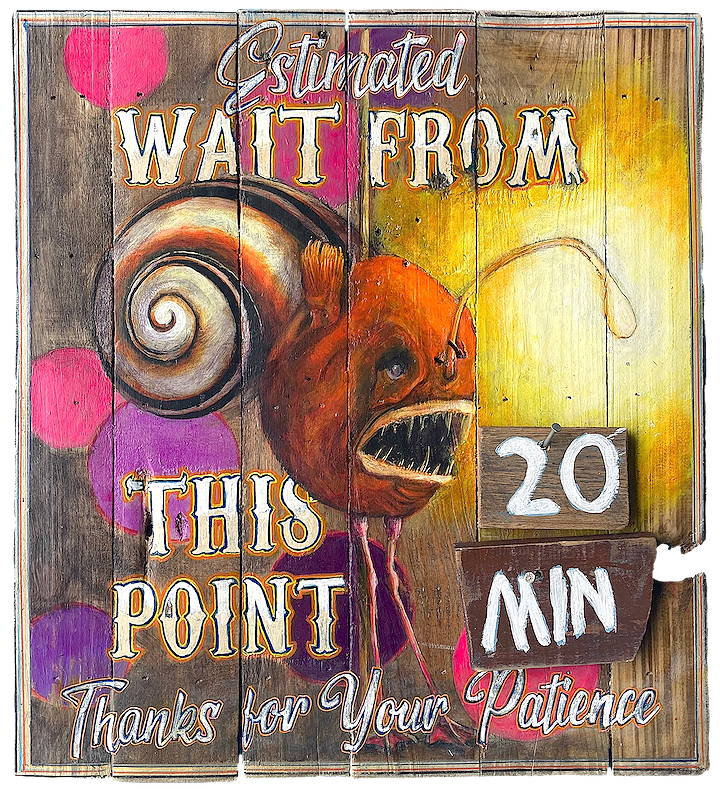 Estimated
WAIT FROM
THIS
POINT
20
MIN
Thanks for Your Patience